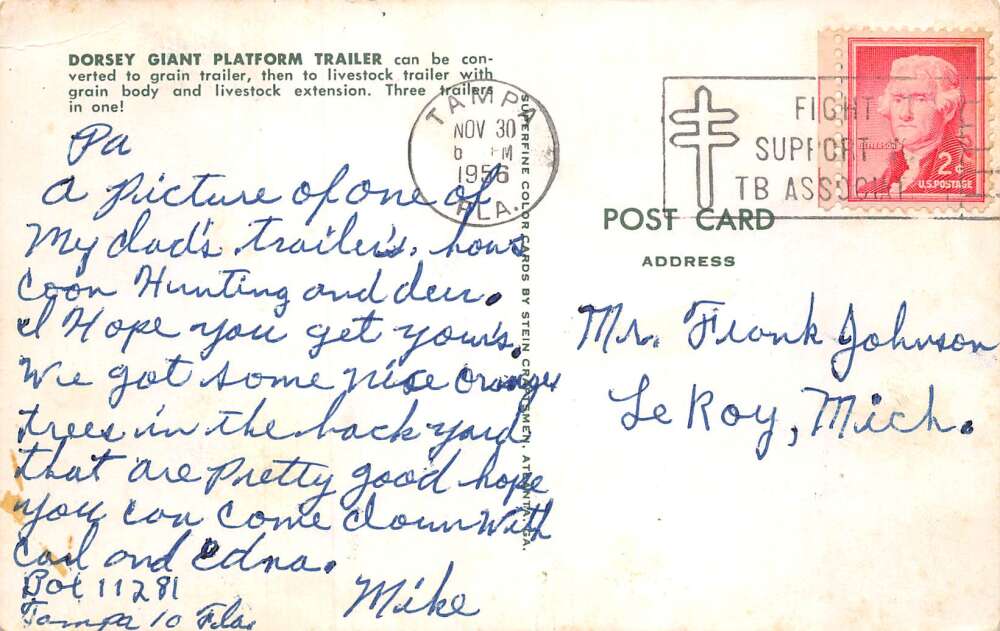 DORSEY GIANT PLATFORM TRAILER can be con-
verted to grain trailer, then to livestock trailer with
grain body and livestock extension. Three trailers
in one!
Pa
A picture of one of
My dad's trailer's, how's
Coon Hunting and deer.
I Hope you get your's.
We got some nice oranges
trees in the back yard
that are pretty good hope
you can come down with
Carl and Edna.
Mike
Box 11281
Tampa 10 Fla.
SUPERFINE COLOR CARDS BY STEIN CRAFTSMEN, ATLANTA, GA.
TAMPA
NOV 30
6 PM
1956
FLA.
FIGHT
SUPPORT
TB ASSOCIAT
JEFFERSON
2¢
U.S. POSTAGE
POST CARD
ADDRESS
Mr. Frank Johnson
Le Roy, Mich.